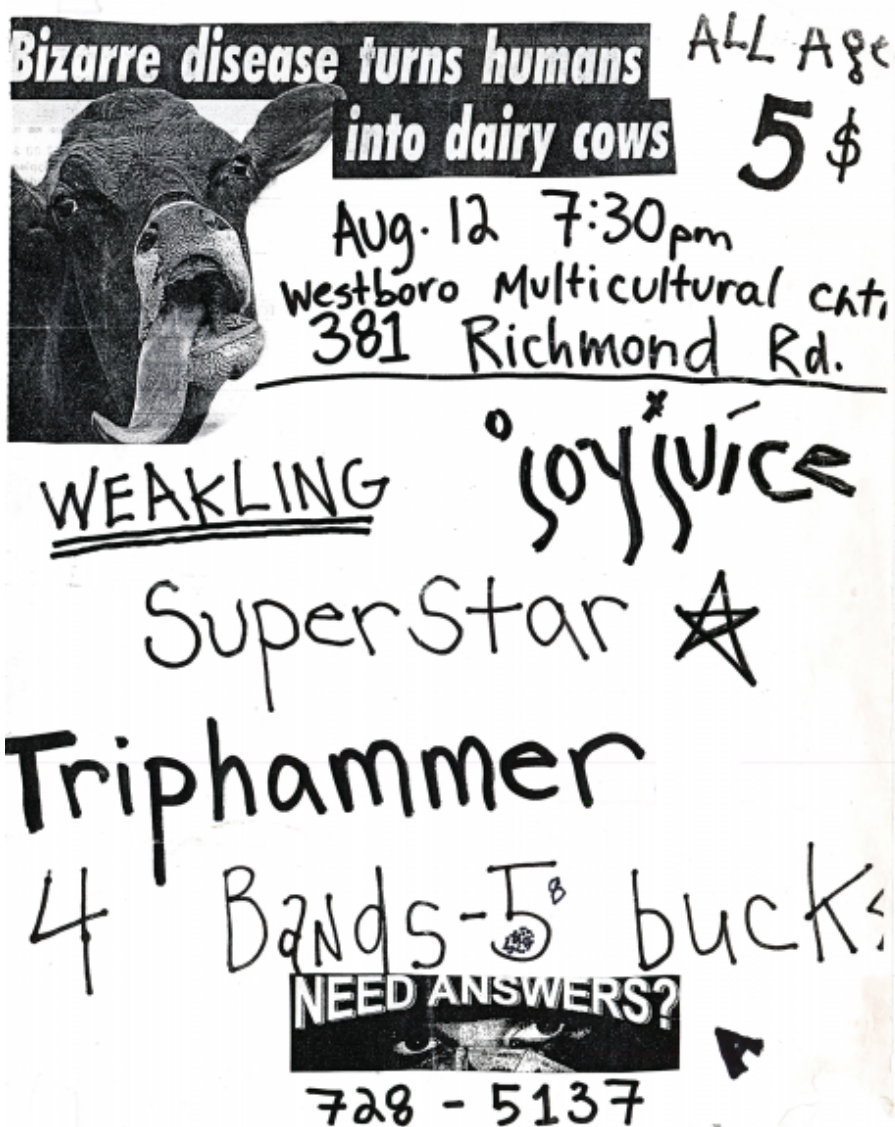 Bizarre disease turns humans
into dairy cows
ALL Age
5 $
Aug. 12 7:30pm
Westboro Multicultural Cnt
381 Richmond Rd.
WEAKLING
joy juice
SuperStar
Triphammer
4 Bands-5 bucks
NEED ANSWERS?
728-5137